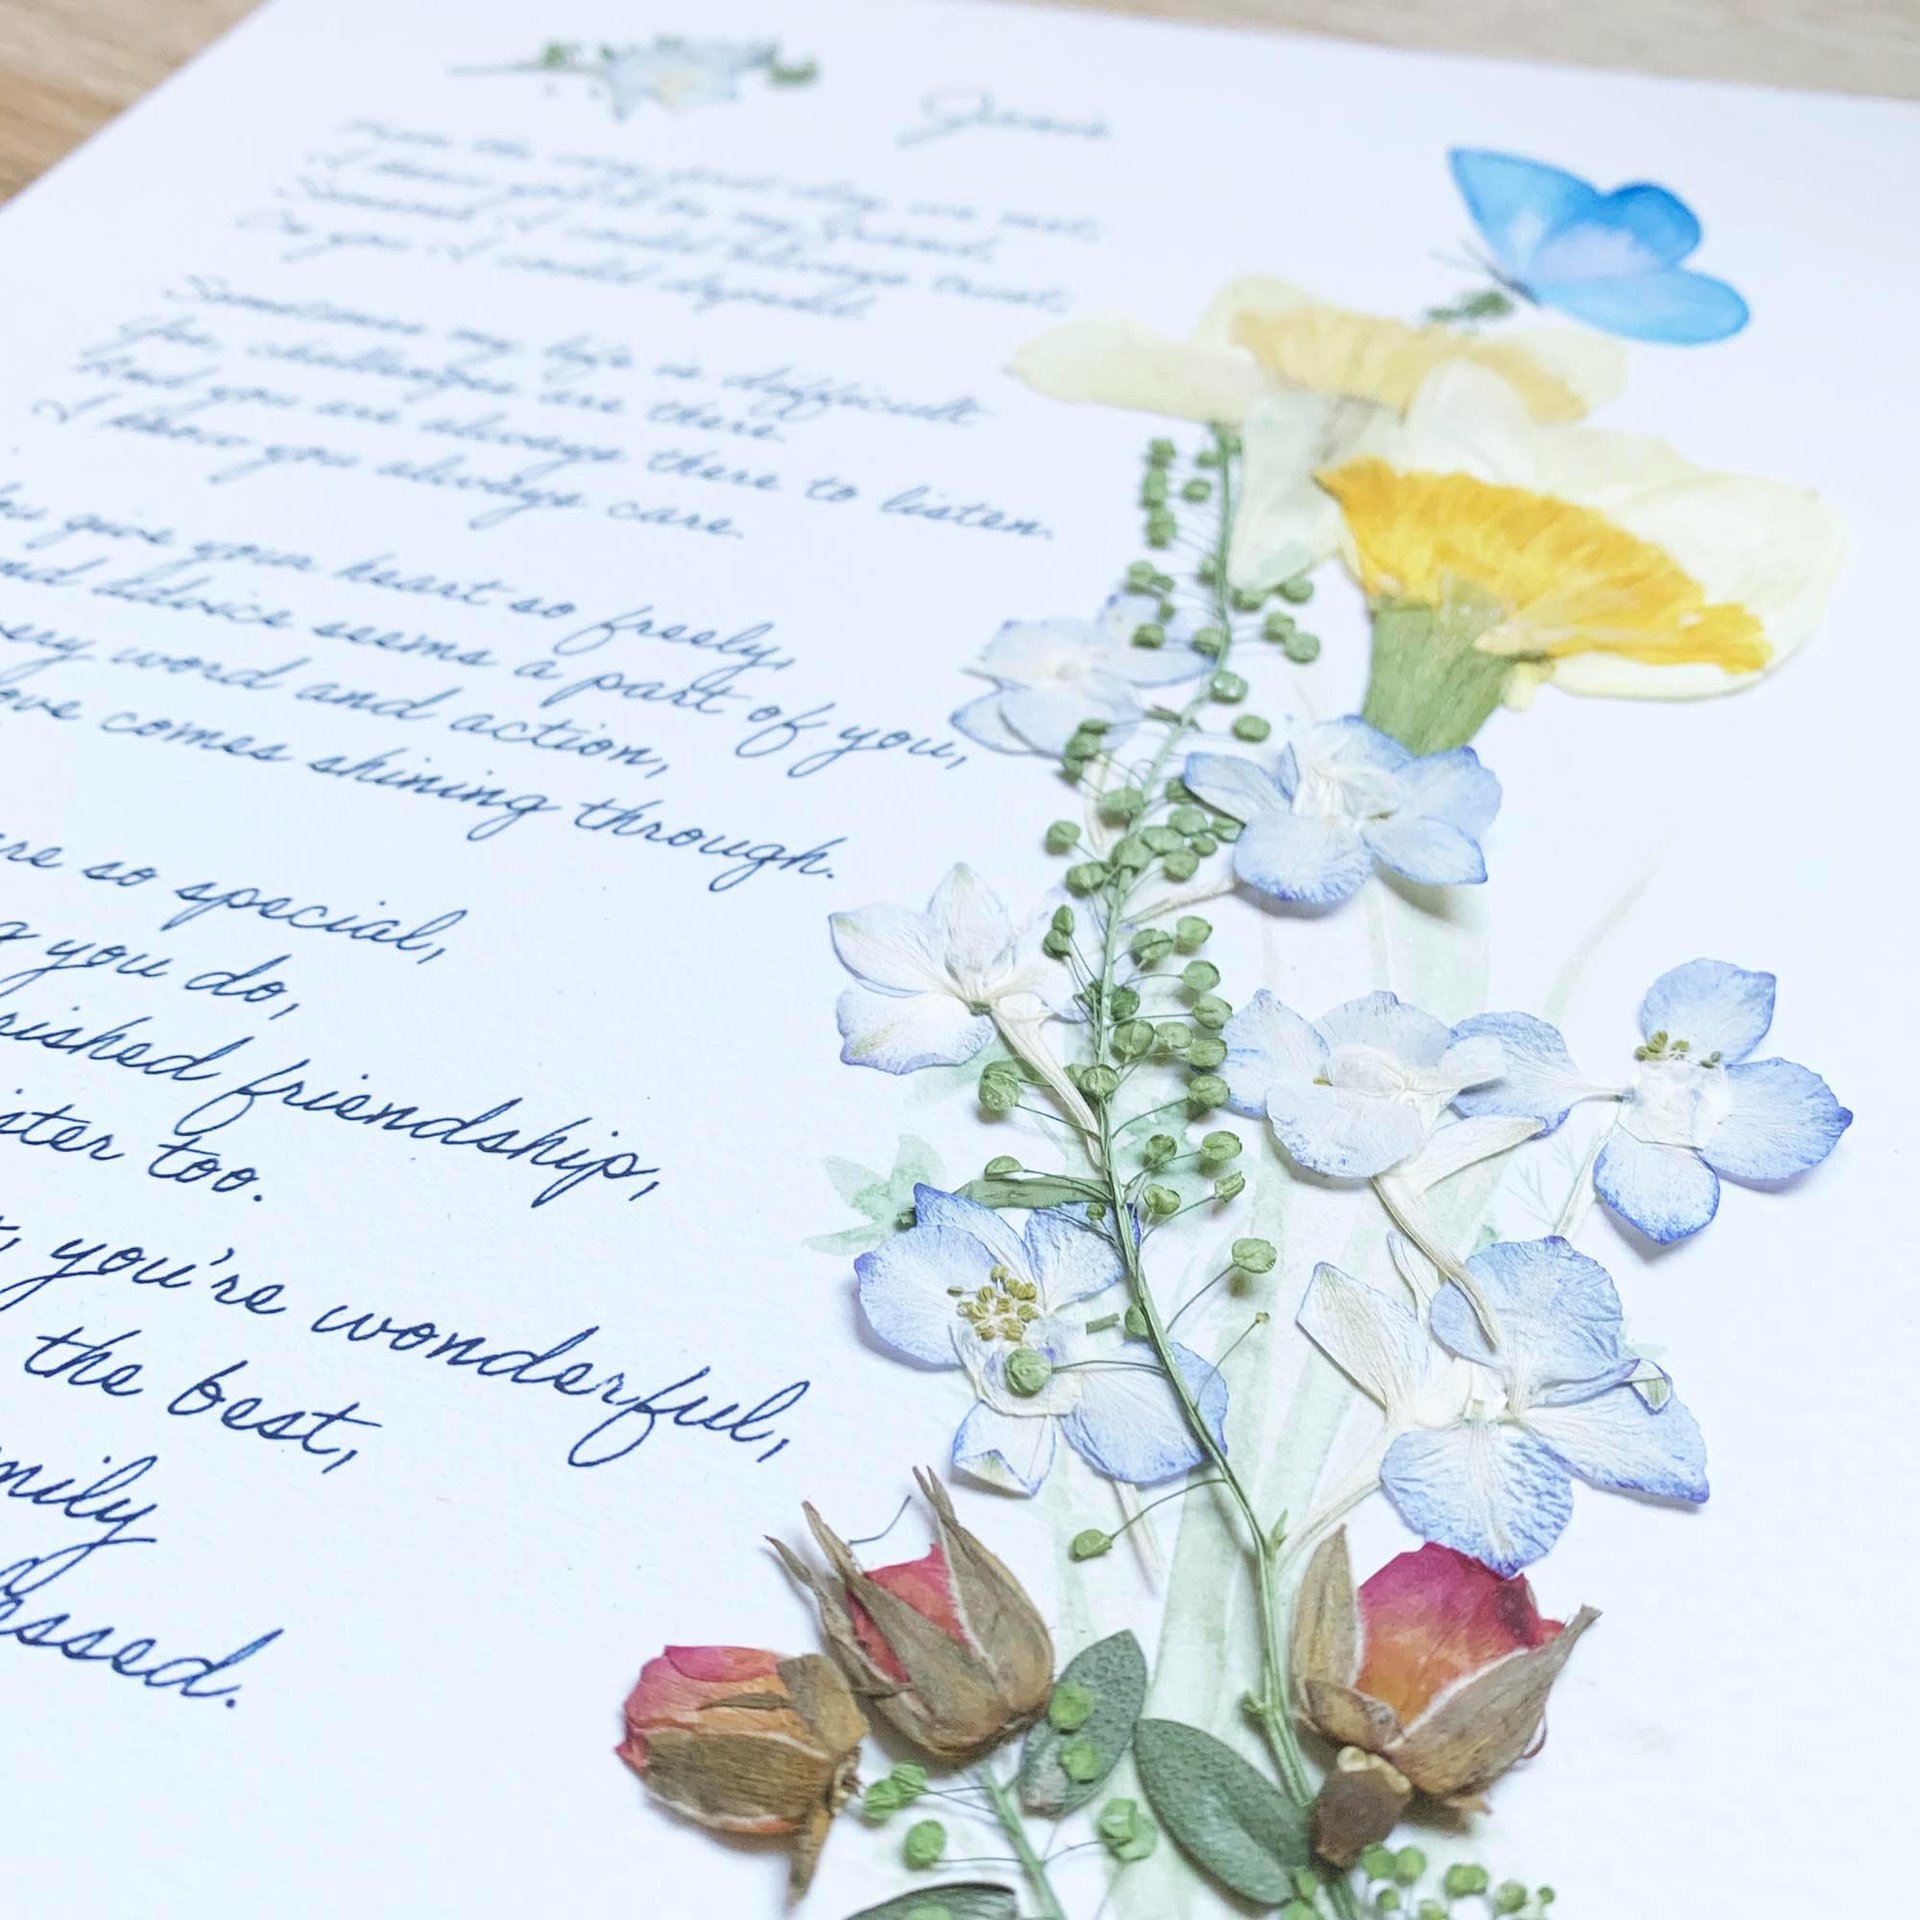 From the very first day we met,
I knew you'd be my friend.
Someone I could always trust,
On you I could depend.
Sometimes my life is difficult
The challenges are there.
And you are always there to listen.
I know you always care.
give your heart so freely,
advice seems a part of you,
word and action,
comes shining through.
so special,
you do,
friendship,
too.
you're wonderful,
the best,